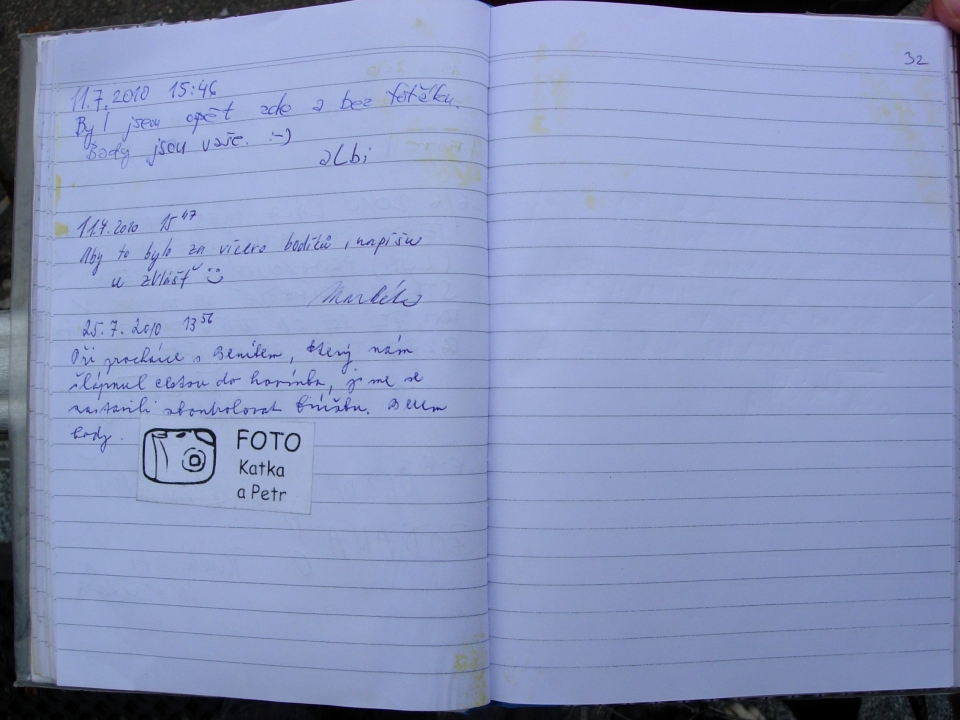 32
11.7.2010 15:46
Byl jsem opět zde a bez
Body jsou vaše. :-)
albi
11.7.2010 15 47
Aby to bylo za vícero bodíků, napíšu
u zvlášť
Markéta
25.7.2010 13 56
Při procházce s Benítem, který nám
šlápnul cestou do hovínka, jsme se
zastavili zkontrolovat knížku. Berem
body.
FOTO
Katka
a Petr